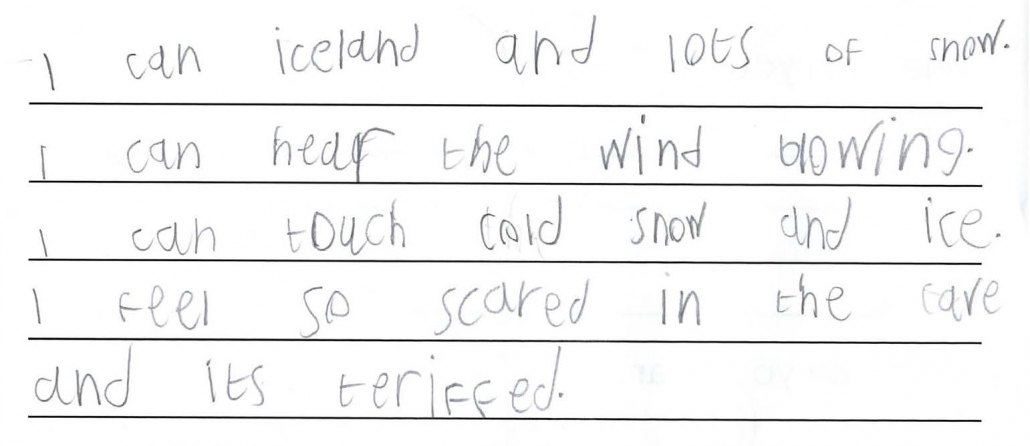 I can iceland and lots of snow.
I can hear the wind blowing.
I can touch cold snow and ice.
I feel so scared in the cave
and its teriffed.